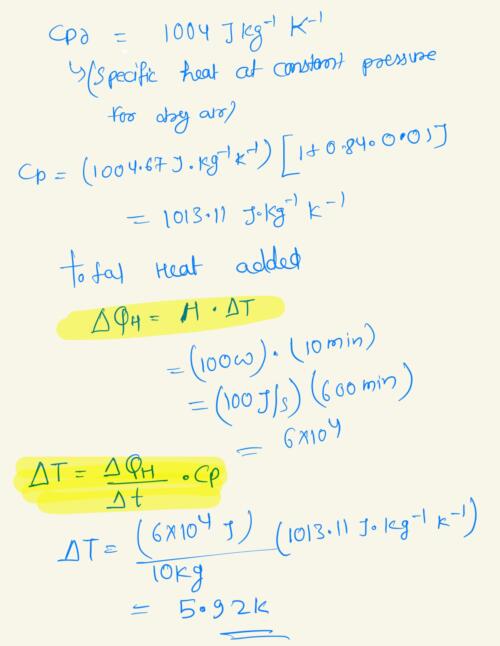 Cpd = 1004 J kg⁻¹ K⁻¹
↳(Specific heat at constant pressure
for dry air)
Cp = (1004.67 J.kg⁻¹k⁻¹) [1+0.84.0.01]
= 1013.11 J.kg⁻¹ k⁻¹
total Heat added
ΔQH = H . ΔT
= (100W) . (10min)
= (100J/s) (600min)
= 6×10⁴
ΔT = ΔQH/Δt . Cp
ΔT = (6×10⁴ J)/10kg (1013.11 J.kg⁻¹ k⁻¹)
= 5.92k